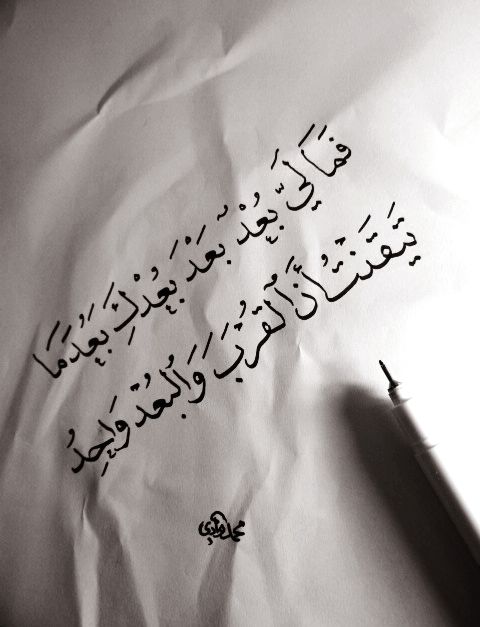 فَمَا لِيَ بُعْدٌ بَعْدَ بُعْدِكَ بَعْدَمَا
تَيَقَنْتُ أَنَّ ٱلْقُرْبَ وَالْبُعْدَ وَاحِدُ
محمد